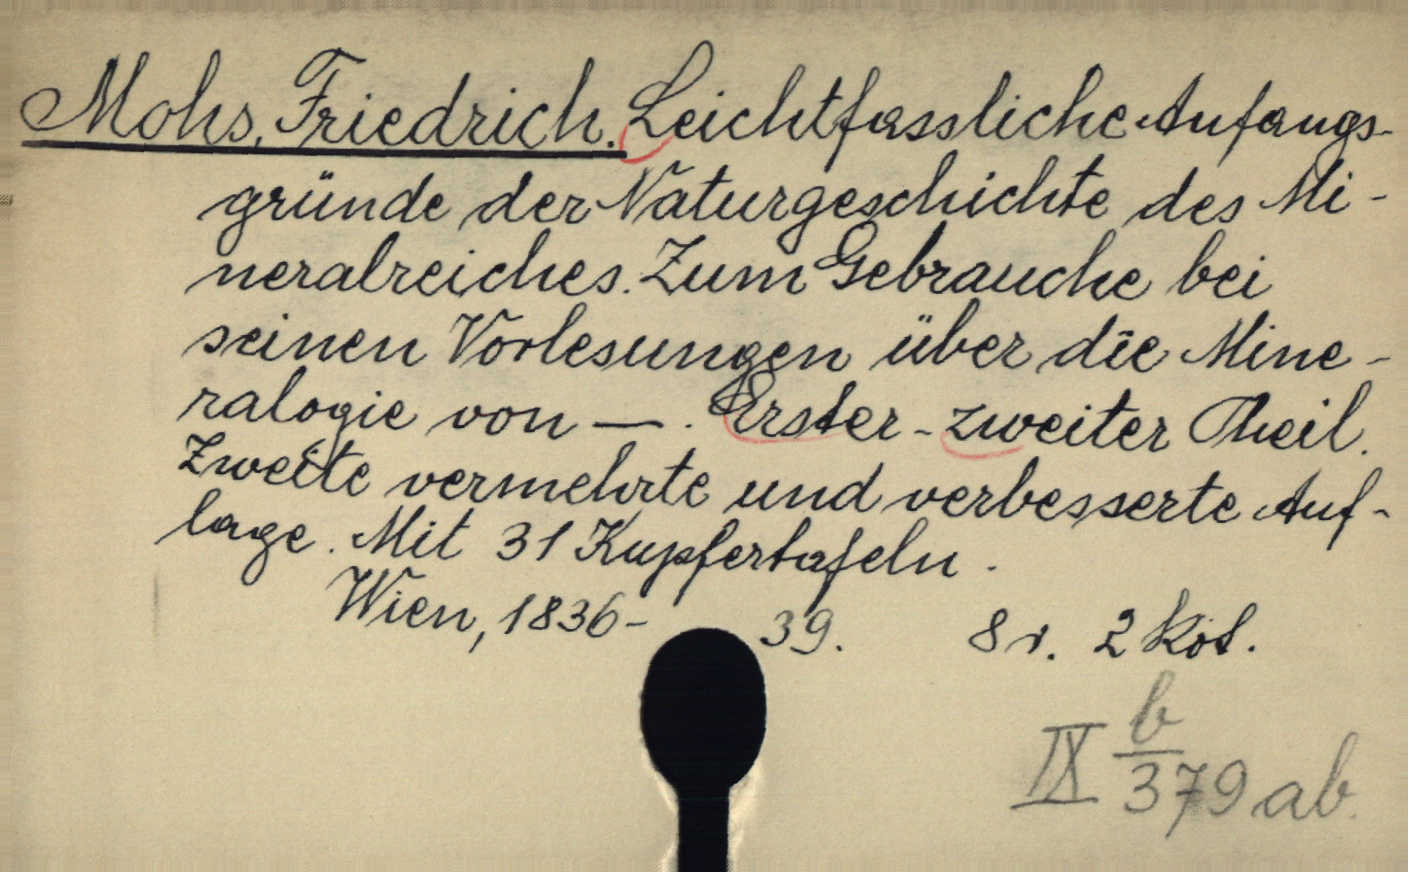 Mohs, Friedrich. Leichtfassliche Anfangs-
gründe der Naturgeschichte des Mi-
neralreiches. Zum Gebrauche bei
seinen Vorlesungen über die Mine-
ralogie von —. Erster-zweiter Theil.
Zweite vermehrte und verbesserte Auf-
lage. Mit 31 Kupfertafeln.
Wien, 1836-39. 8r. 2 köt.
IX b/379 ab.